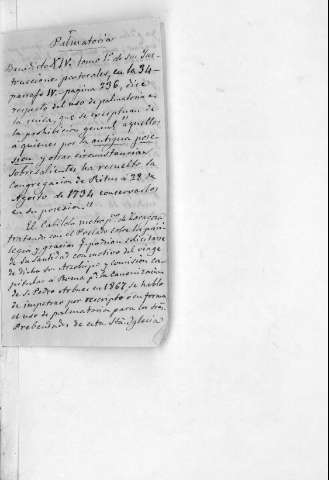 Palmatoria
Benedicto XIV, tomo 1º de sus Ins-
trucciones pastorales, en la 34-
parrafo IV - pagina 236, dice
respecto del uso de palmatoria en
la misa, que se exceptuan de
la prohibicion general "aquellos
á quienes por la antigua pose-
sion y otras circunstancias
sobresalientes ha resuelto la
Congregacion de Ritus á 28 de
Agosto de 1734 conservarlos
en su posesion."
El Cabildo metropno. de Zaragoza
tratando con el Prelado sobre los privi-
legios y gracias q. podrian solicitarse
de Su Santidad con motivo del viage
de dicho Sr. Arzobispo y comision ca-
pitular á Roma pª la Canonizacion
de S. Pedro Arbues en 1867, se habló
de impetrar por rescripto ó en forma
el uso de palmatoria para los Sres.
Prebendados de esta Sta. Iglesia